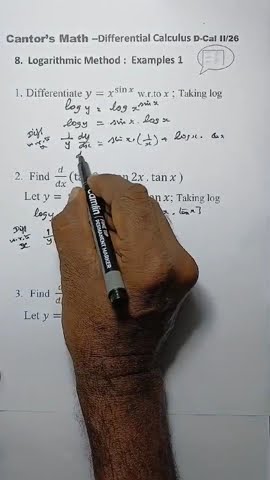 Cantor's Math –Differential Calculus D-Cal II/26
8. Logarithmic Method : Examples 1
1. Differentiate y = x^{sin x} w.r.to x ; Taking log
log y = log x^{sin x}
log y = sin x . log x
Diff w.r.to x 1/y dy/dx = sin x . (1/x) + log x . cos x
2. Find d/dx (ta 2x . tan x)
Let y = n x; Taking log
log y . tan x]
Diff w.r.to x 1/y
3. Find
Let y =
camlin
PERMANENT MARKER